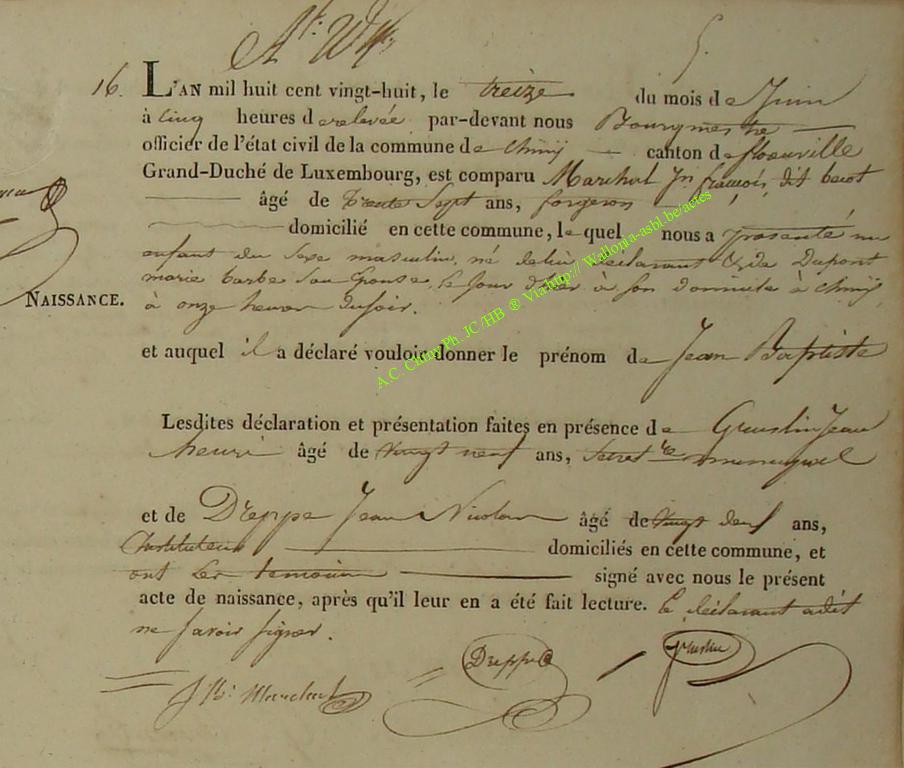 5.
16. L'AN mil huit cent vingt-huit, le treize du mois de Juin
à cinq heures de relevée par-devant nous Bourgmestre
officier de l'état civil de la commune de Chiny canton de florenville
Grand-Duché de Luxembourg, est comparu Marchal Jn françois, dit
âgé de trente Sept ans, forgeron
domicilié en cette commune, lequel nous a présenté un
enfant du Sexe masculin, né de lui déclarant & de Dupont
marie barbe Son Epouse, le jour d'hier à Son domicile à Chiny,
NAISSANCE. à onze heures du soir.
et auquel il a déclaré vouloir donner le prénom de Jean Baptiste
Lesdites déclaration et présentation faites en présence de Jean
henri âgé de vingt neuf ans, Secretre municipal
et de Dreppe Jean Nicolas âgé de vingt deux ans,
Instituteur domiciliés en cette commune, et
ont les temoins signé avec nous le présent
acte de naissance, après qu'il leur en a été fait lecture. le déclarant a dit
ne Savoir Signer.
Dreppe
A.C. Chiny Ph. JC/HB ® Via http://Wallonia-asbl.be/actes